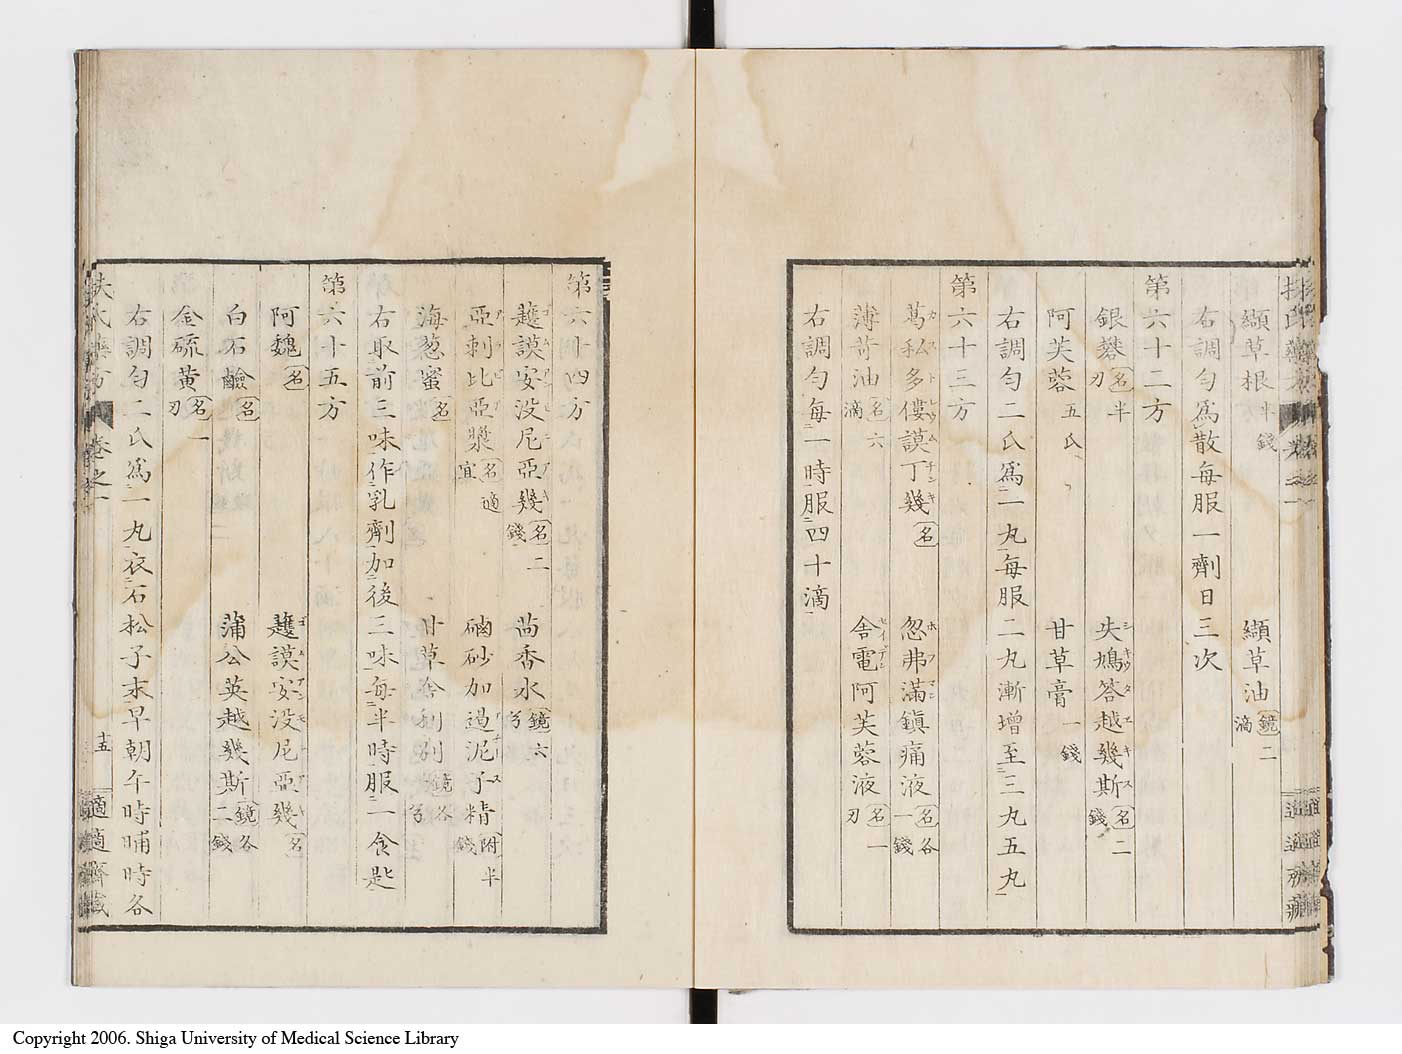 纈草根 半錢 纈草油 鏡 二滴
右調勻爲散毎服一劑日三次
第六十二方
銀礬 名 半刃 失鳩答越幾斯 名 二錢
阿芙蓉 五氏 甘草膏 一錢
右調勻二氏爲一丸毎服二丸漸増至三丸五丸
第六十三方
葛私多僂謨丁幾 名 忽弗滿鎮痛液 名 各一錢
薄荷油 名 六滴 舎電阿芙蓉液 名 一刃
右調勻毎一時服四十滴
第六十四方
護謨安没尼亞幾 名 二錢 茴香水 鏡 六
亞剌比亞漿 名 適宜 硇砂加過泥子精 附 半錢
海葱蜜 名 甘草舎利別 鏡 各
右取前三味作乳劑加後三味毎半時服一食匙
第六十五方
阿魏 名 護謨安没尼亞幾 名
白石鹼 名 蒲公英越幾斯 鏡 各二錢
金硫黄 名 一刃
右調勻二氏爲一丸衣石松子末早朝午時晡時各
扶氏藥方 卷之一 十五 適適齋藏
Copyright 2006. Shiga University of Medical Science Library